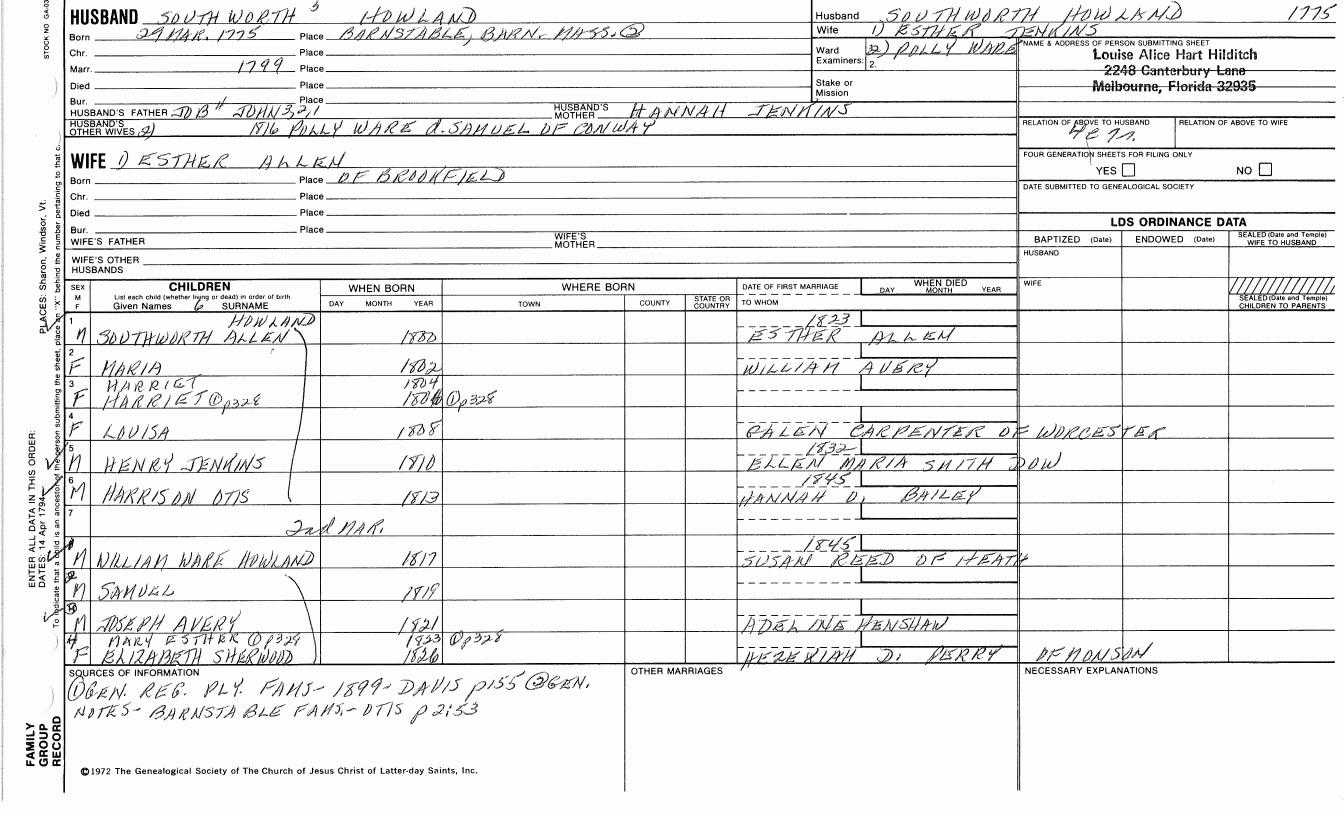 STOCK NO GA-03
HUSBAND SOUTHWORTH 5 HOWLAND
Born 29 MAR. 1775 Place BARNSTABLE, BARN. MASS. ②
Chr. Place
Marr. 1799 Place
Died Place
Bur. Place
HUSBAND'S FATHER JOB4 JOHN3,2,1 HUSBAND'S MOTHER HANNAH JENKINS
HUSBAND'S OTHER WIVES 2) 1816 POLLY WARE d. SAMUEL OF CONWAY
Husband SOUTHWORTH HOWLAND 1775
Wife 1) ESTHER JENKINS
Ward 2) POLLY WARE
Examiners: 2.
Stake or Mission
NAME & ADDRESS OF PERSON SUBMITTING SHEET
Louise Alice Hart Hilditch
2248 Canterbury Lane
Melbourne, Florida 32935
RELATION OF ABOVE TO HUSBAND RELATION OF ABOVE TO WIFE
FOUR GENERATION SHEETS FOR FILING ONLY
YES NO
DATE SUBMITTED TO GENEALOGICAL SOCIETY
WIFE 1) ESTHER ALLEN
Born Place OF BROOKFIELD
Chr. Place
Died Place
Bur. Place
WIFE'S FATHER WIFE'S MOTHER
WIFE'S OTHER HUSBANDS
LDS ORDINANCE DATA
BAPTIZED (Date) ENDOWED (Date) SEALED (Date and Temple) WIFE TO HUSBAND
HUSBAND
WIFE
SEALED (Date and Temple) CHILDREN TO PARENTS
SEX M F CHILDREN WHEN BORN WHERE BORN DATE OF FIRST MARRIAGE WHEN DIED
List each child (whether living or dead) in order of birth
Given Names 6 SURNAME DAY MONTH YEAR TOWN COUNTY STATE OR COUNTRY TO WHOM DAY MONTH YEAR
1 HOWLAND 1823
M SOUTHWORTH ALLEN 1800 ESTHER ALLEN
2
F MARIA 1802 WILLIAM AVERY
3 HARRIET 1804
F HARRIET ① p328 1806 ① p328
4
F LOUISA 1808 GALEN CARPENTER OF WORCESTER
5 1832
M HENRY JENKINS 1810 ELLEN MARIA SMITH DOW
6 1845
M HARRISON OTIS 1813 HANNAH D. BAILEY
7
2nd MAR.
1845
M WILLIAM WARE HOWLAND 1817 SUSAN REED OF HEATH
M SAMUEL 1819
M JOSEPH AVERY 1821 ADELINE HENSHAW
MARY ESTHER ① p329 1823 ① p328
F ELIZABETH SHERWOOD 1826 HEZEKIAH D. PERRY OF MONSON
SOURCES OF INFORMATION OTHER MARRIAGES NECESSARY EXPLANATIONS
① GEN. REG. PLY. FAMS - 1899 - DAVIS p155 ② GEN.
NOTES - BARNSTABLE FAMS. - OTIS p 2:53
©1972 The Genealogical Society of The Church of Jesus Christ of Latter-day Saints, Inc.
FAMILY GROUP RECORD
ENTER ALL DATA IN THIS ORDER:
DATES: 14 Apr 1794 PLACES: Sharon, Windsor, Vt.
To indicate that a child is an ancestor of the person submitting the sheet, place an "X" behind the number pertaining to that c.